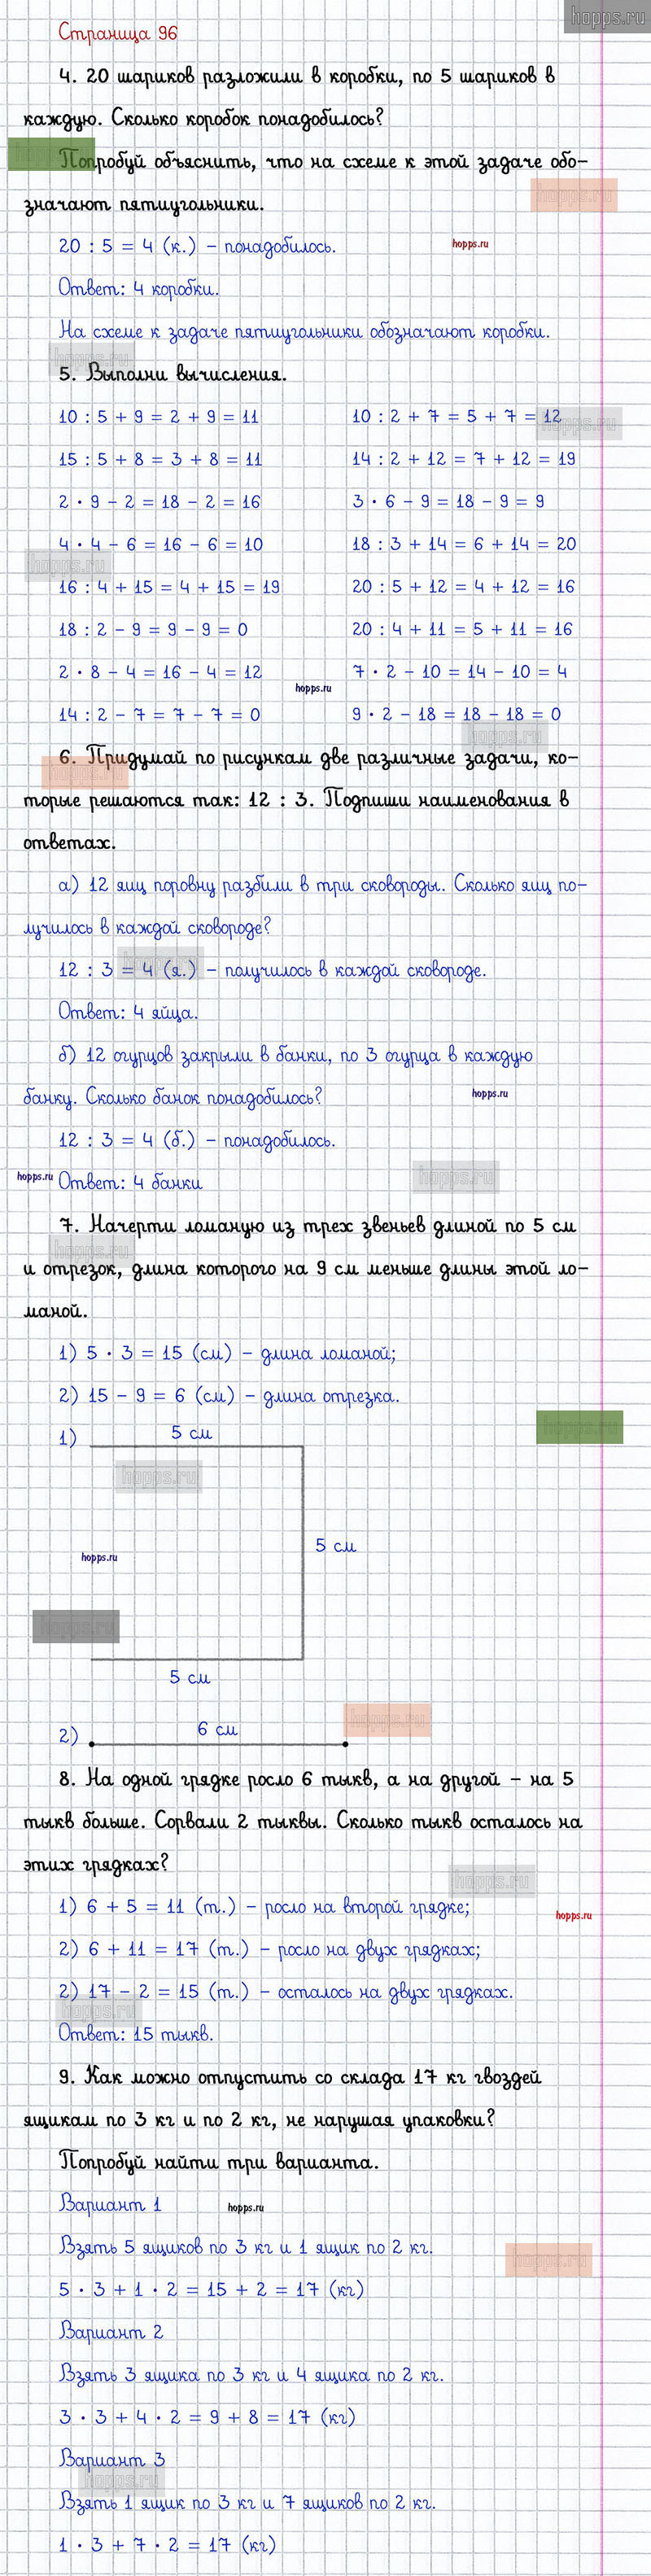 hopps.ru
Страница 96
4. 20 шариков разложили в коробки, по 5 шариков в
каждую. Сколько коробок понадобилось?
hopps.ru
Попробуй объяснить, что на схеме к этой задаче обо-
hopps.ru
значают пятиугольники.
20 : 5 = 4 (к.) – понадобилось.
hopps.ru
Ответ: 4 коробки.
На схеме к задаче пятиугольники обозначают коробки.
hopps.ru
5. Выполни вычисления.
10 : 5 + 9 = 2 + 9 = 11
10 : 2 + 7 = 5 + 7 = 12
hopps.ru
15 : 5 + 8 = 3 + 8 = 11
14 : 2 + 12 = 7 + 12 = 19
2 · 9 – 2 = 18 – 2 = 16
3 · 6 – 9 = 18 – 9 = 9
4 · 4 – 6 = 16 – 6 = 10
18 : 3 + 14 = 6 + 14 = 20
hopps.ru
16 : 4 + 15 = 4 + 15 = 19
20 : 5 + 12 = 4 + 12 = 16
18 : 2 – 9 = 9 – 9 = 0
20 : 4 + 11 = 5 + 11 = 16
2 · 8 – 4 = 16 – 4 = 12
7 · 2 – 10 = 14 – 10 = 4
hopps.ru
14 : 2 – 7 = 7 – 7 = 0
9 · 2 – 18 = 18 – 18 = 0
hopps.ru
6. Придумай по рисункам две различные задачи, ко-
hopps.ru
торые решаются так: 12 : 3. Подпиши наименования в
ответах.
а) 12 яиц поровну разбили в три сковороды. Сколько яиц по-
лучилось в каждой сковороде?
hopps.ru
12 : 3 = 4 (я.) – получилось в каждой сковороде.
Ответ: 4 яйца.
б) 12 огурцов закрыли в банки, по 3 огурца в каждую
банку. Сколько банок понадобилось?
hopps.ru
12 : 3 = 4 (б.) – понадобилось.
hopps.ru
Ответ: 4 банки
hopps.ru
7. Начерти ломаную из трех звеньев длиной по 5 см
hopps.ru
и отрезок, длина которого на 9 см меньше длины этой ло-
маной.
1) 5 · 3 = 15 (см) – длина ломаной;
2) 15 – 9 = 6 (см) – длина отрезка.
1)
5 см
hopps.ru
hopps.ru
5 см
hopps.ru
hopps.ru
5 см
hopps.ru
2)
6 см
8. На одной грядке росло 6 тыкв, а на другой – на 5
тыкв больше. Сорвали 2 тыквы. Сколько тыкв осталось на
этих грядках?
hopps.ru
1) 6 + 5 = 11 (т.) – росло на второй грядке;
hopps.ru
2) 6 + 11 = 17 (т.) – росло на двух грядках;
2) 17 – 2 = 15 (т.) – осталось на двух грядках.
hopps.ru
Ответ: 15 тыкв.
9. Как можно отпустить со склада 17 кг гвоздей
ящикам по 3 кг и по 2 кг, не нарушая упаковки?
Попробуй найти три варианта.
Вариант 1
hopps.ru
Взять 5 ящиков по 3 кг и 1 ящик по 2 кг.
hopps.ru
5 · 3 + 1 · 2 = 15 + 2 = 17 (кг)
Вариант 2
Взять 3 ящика по 3 кг и 4 ящика по 2 кг.
3 · 3 + 4 · 2 = 9 + 8 = 17 (кг)
Вариант 3
hopps.ru
Взять 1 ящик по 3 кг и 7 ящиков по 2 кг.
1 · 3 + 7 · 2 = 17 (кг)